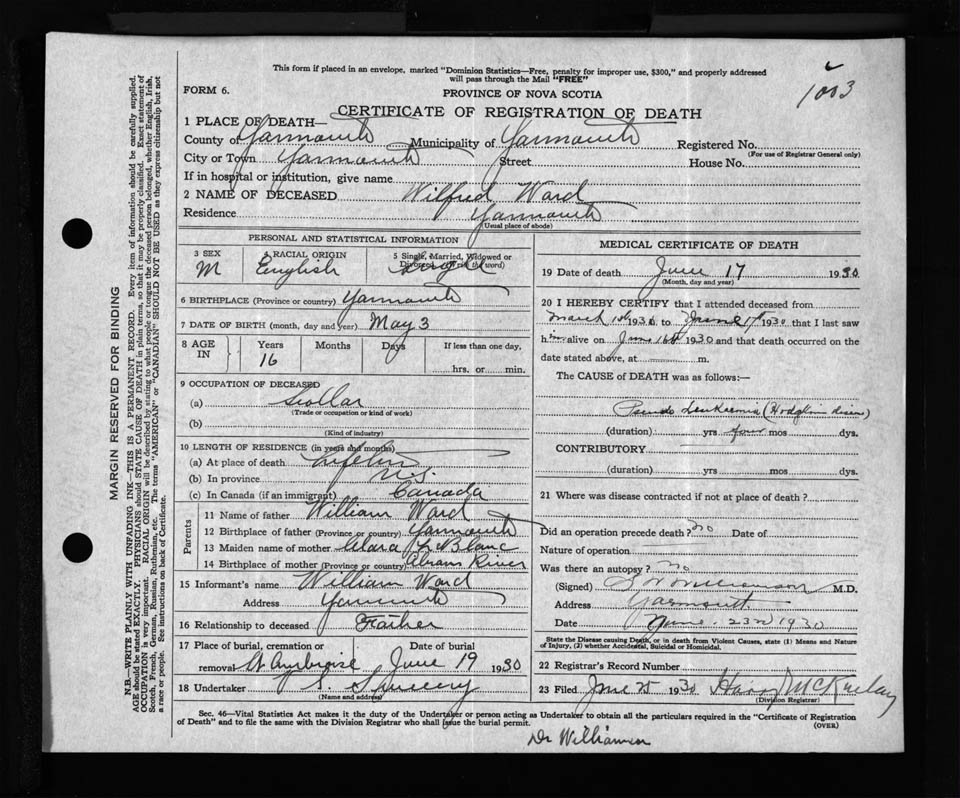 This form if placed in an envelope, marked "Dominion Statistics—Free, penalty for improper use, $300," and properly addressed
will pass through the Mail "FREE"
1003
FORM 6.
PROVINCE OF NOVA SCOTIA
CERTIFICATE OF REGISTRATION OF DEATH
1 PLACE OF DEATH—
County of Yarmouth Municipality of Yarmouth Registered No.
(For use of Registrar General only)
City or Town Yarmouth Street House No.
If in hospital or institution, give name
2 NAME OF DECEASED Wilfred Ward
Residence Yarmouth
(Usual place of abode)
PERSONAL AND STATISTICAL INFORMATION
3 SEX M
4 RACIAL ORIGIN English
5 Single, Married, Widowed or Divorced (write the word) Single
6 BIRTHPLACE (Province or country) Yarmouth
7 DATE OF BIRTH (month, day and year) May 3
8 AGE IN Years 16 Months Days If less than one day, hrs. or min.
9 OCCUPATION OF DECEASED
(a) Scollar
(Trade or occupation or kind of work)
(b)
(Kind of industry)
10 LENGTH OF RESIDENCE (in years and months)
(a) At place of death Lifetime
(b) In province N.S.
(c) In Canada (if an immigrant) Canada
Parents
11 Name of father William Ward
12 Birthplace of father (Province or country) Yarmouth
13 Maiden name of mother Clara LeBlanc
14 Birthplace of mother (Province or country) Abrams River
15 Informant's name William Ward
Address Yarmouth
16 Relationship to deceased Father
17 Place of burial, cremation or removal St Ambroise Date of burial June 19 1930
18 Undertaker S Sweeny
(Name and address)
MEDICAL CERTIFICATE OF DEATH
19 Date of death June 17 1930
(Month, day and year)
20 I HEREBY CERTIFY that I attended deceased from
March 1930 to June 17th 1930 that I last saw
him alive on June 16th 1930 and that death occurred on the
date stated above, at m.
The CAUSE of DEATH was as follows:—
Pseudo Leukaemia (Hodgkins disease)
(duration) yrs four mos dys.
CONTRIBUTORY
(duration) yrs mos dys.
21 Where was disease contracted if not at place of death?
Did an operation precede death? no Date of
Nature of operation
Was there an autopsy? No
(Signed) Williamson M.D.
Address Yarmouth
Date June 23rd 1930
State the Disease causing Death, or in death from Violent Causes, state (1) Means and Nature
of Injury, (2) whether Accidental, Suicidal or Homicidal.
22 Registrar's Record Number
23 Filed June 25 1930 Harry McKinlay
(Division Registrar)
Sec. 46—Vital Statistics Act makes it the duty of the Undertaker or person acting as Undertaker to obtain all the particulars required in the "Certificate of Registration
of Death" and to file the same with the Division Registrar who shall issue the burial permit.
(OVER)
Dr Williamson
MARGIN RESERVED FOR BINDING
N.B.—WRITE PLAINLY WITH UNFADING INK—THIS IS A PERMANENT RECORD. Every item of information should be carefully supplied.
AGE should be stated EXACTLY. PHYSICIANS should STATE CAUSE OF DEATH in plain terms, so that it may be properly classified. Exact statement of
OCCUPATION is very important. RACIAL ORIGIN will be described by stating to what people or tongue the deceased person belonged, whether English, Irish,
Scotch, French, German, Russian, Ruthenian, etc. The terms "AMERICAN" or "CANADIAN" SHOULD NOT BE USED as they express citizenship but not
a race or people. See instructions on back of Certificate.